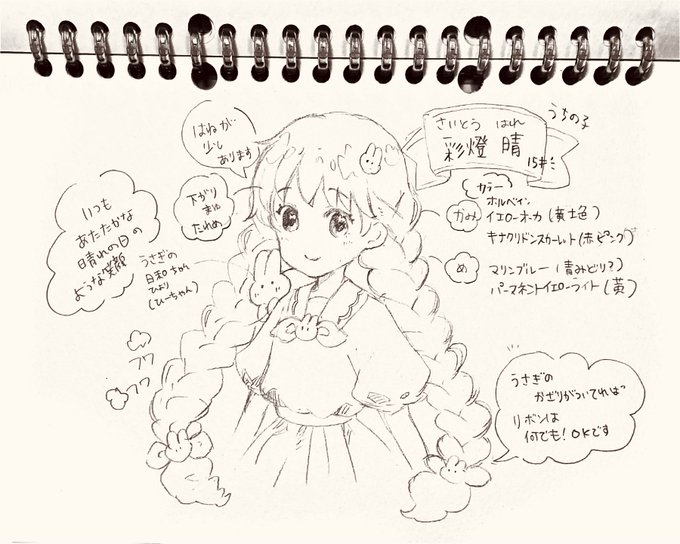 はねが
少し
あります
さいとう はれ
彩燈 晴
15才
うちの子
下がり
まゆ
たれめ
カラー
ホルベイン
かみ
イエローオーカ(黄土色)
キナクリドンスカーレット(赤ピンク)
いつも
あたたかな
晴れの日の
ような笑顔
うさぎの
日和ちゃん
ひより
(ひーちゃん)
め
マリンブルー(青みどり?)
パーマネントイエローライト(黄)
フワ
フワ
うさぎの
かざりがついてれば
リボンは
何でも!OKです